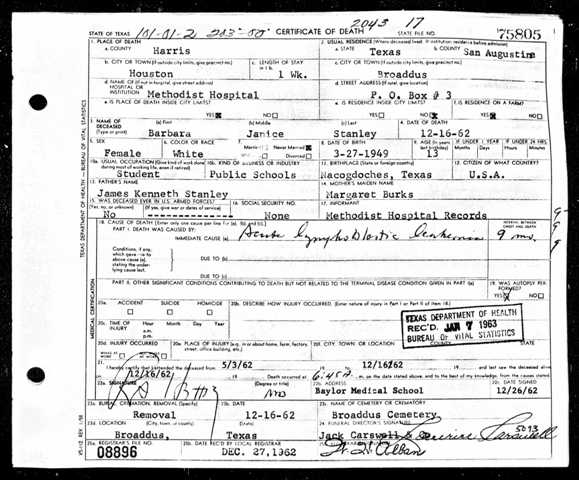 2043 17
STATE OF TEXAS 101-01-2 203-00 CERTIFICATE OF DEATH STATE FILE NO. 75805
1. PLACE OF DEATH
a. COUNTY Harris
2. USUAL RESIDENCE (Where deceased lived. If institution: residence before admission)
a. STATE Texas b. COUNTY San Augustine
b. CITY OR TOWN (If outside city limits, give precinct no.) Houston
c. LENGTH OF STAY in 1b. 1 Wk.
c. CITY OR TOWN (If outside city limits, give precinct no.) Broaddus
d. NAME OF (If not in hospital, give street address) HOSPITAL OR INSTITUTION Methodist Hospital
d. STREET ADDRESS (If rural, give location) P. O. Box # 3
e. IS PLACE OF DEATH INSIDE CITY LIMITS? YES NO
e. IS RESIDENCE INSIDE CITY LIMITS? YES NO
f. IS RESIDENCE ON A FARM? YES NO
3. NAME OF DECEASED (Type or print) (a) First Barbara (b) Middle Janice (c) Last Stanley
4. DATE OF DEATH 12-16-62
5. SEX Female
6. COLOR OR RACE White
7. Married Never Married Widowed Divorced
8. DATE OF BIRTH 3-27-1949
9. AGE (In years last birthday) 13
IF UNDER 1 YEAR Months Days
IF UNDER 24 HRS. Hours Min.
10a. USUAL OCCUPATION (Give kind of work done during most of working life, even if retired) Student
10b. KIND OF BUSINESS OR INDUSTRY Public Schools
11. BIRTHPLACE (State or foreign country) Nacogdoches, Texas
12. CITIZEN OF WHAT COUNTRY? U.S.A.
13. FATHER'S NAME James Kenneth Stanley
14. MOTHER'S MAIDEN NAME Margaret Burks
15. WAS DECEASED EVER IN U.S. ARMED FORCES? (If yes, give war or dates of service) No
16. SOCIAL SECURITY NO. None
17. INFORMANT Methodist Hospital Records
18. CAUSE OF DEATH [Enter only one cause per line for (a), (b), and (c).]
INTERVAL BETWEEN ONSET AND DEATH
PART I. DEATH WAS CAUSED BY:
IMMEDIATE CAUSE (a) Acute Lymphoblastic Leukemia 9 mo.
Conditions, if any, which gave rise to above cause (a), stating the underlying cause last.
DUE TO (b)
DUE TO (c)
PART II. OTHER SIGNIFICANT CONDITIONS CONTRIBUTING TO DEATH BUT NOT RELATED TO THE TERMINAL DISEASE CONDITION GIVEN IN PART I(a)
19. WAS AUTOPSY PERFORMED? YES NO
20a. ACCIDENT SUICIDE HOMICIDE
20b. DESCRIBE HOW INJURY OCCURRED. (Enter nature of injury in Part I or Part II of item 18.)
20c. TIME OF INJURY Hour Month Day Year
TEXAS DEPARTMENT OF HEALTH
REC'D. JAN 7 1963
BUREAU OF VITAL STATISTICS
20d. INJURY OCCURRED
20e. PLACE OF INJURY (e.g., in or about home, farm, factory, street, office building, etc.)
20f. CITY, TOWN, OR LOCATION COUNTY STATE
21. I hereby certify that I attended the deceased from 5/3/62 , 19 , to 12/16/62 , and last saw the deceased alive
12/16/62 , 19 . Death occurred at 6:45A m. on the date stated above, and to the best of my knowledge, from the causes stated.
22a. SIGNATURE (Degree or title) MD
22b. ADDRESS Baylor Medical School
22c. DATE SIGNED 12/26/62
23a. BURIAL, CREMATION, REMOVAL (Specify) Removal
23b. DATE 12-16-62
23c. NAME OF CEMETERY OR CREMATORY Broaddus Cemetery
23d. LOCATION (City, town, or county) (State) Broaddus, Texas
24. FUNERAL DIRECTOR'S SIGNATURE Jack Carswell 5073
25a. REGISTRAR'S FILE NO. 08896
25b. DATE REC'D BY LOCAL REGISTRAR DEC. 27, 1962
TEXAS DEPARTMENT OF HEALTH - BUREAU OF VITAL STATISTICS
MEDICAL CERTIFICATION